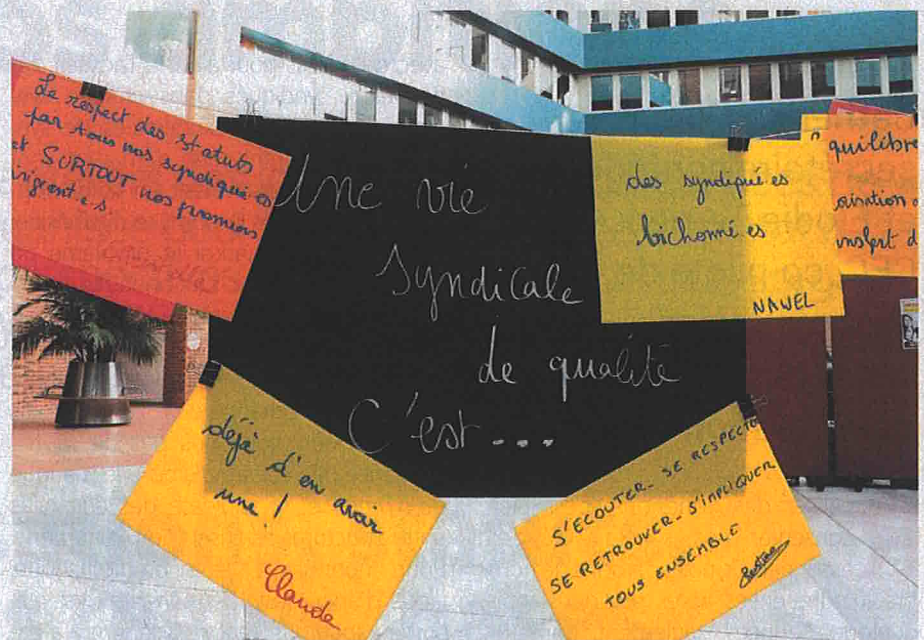 Le respect des statuts
par tous nos syndiqué es
et SURTOUT nos premiers
irigeant.e.s.
Une vie
Syndicale
de qualité
C'est ...
des syndiqué es
bichonné es
NAWEL
quilibre
déjà d'en avoir
une !
Claude
S'ECOUTER_ SE RESPECTE
SE RETROUVER_ S'IMPLIQUER
TOUS ENSEMBLE